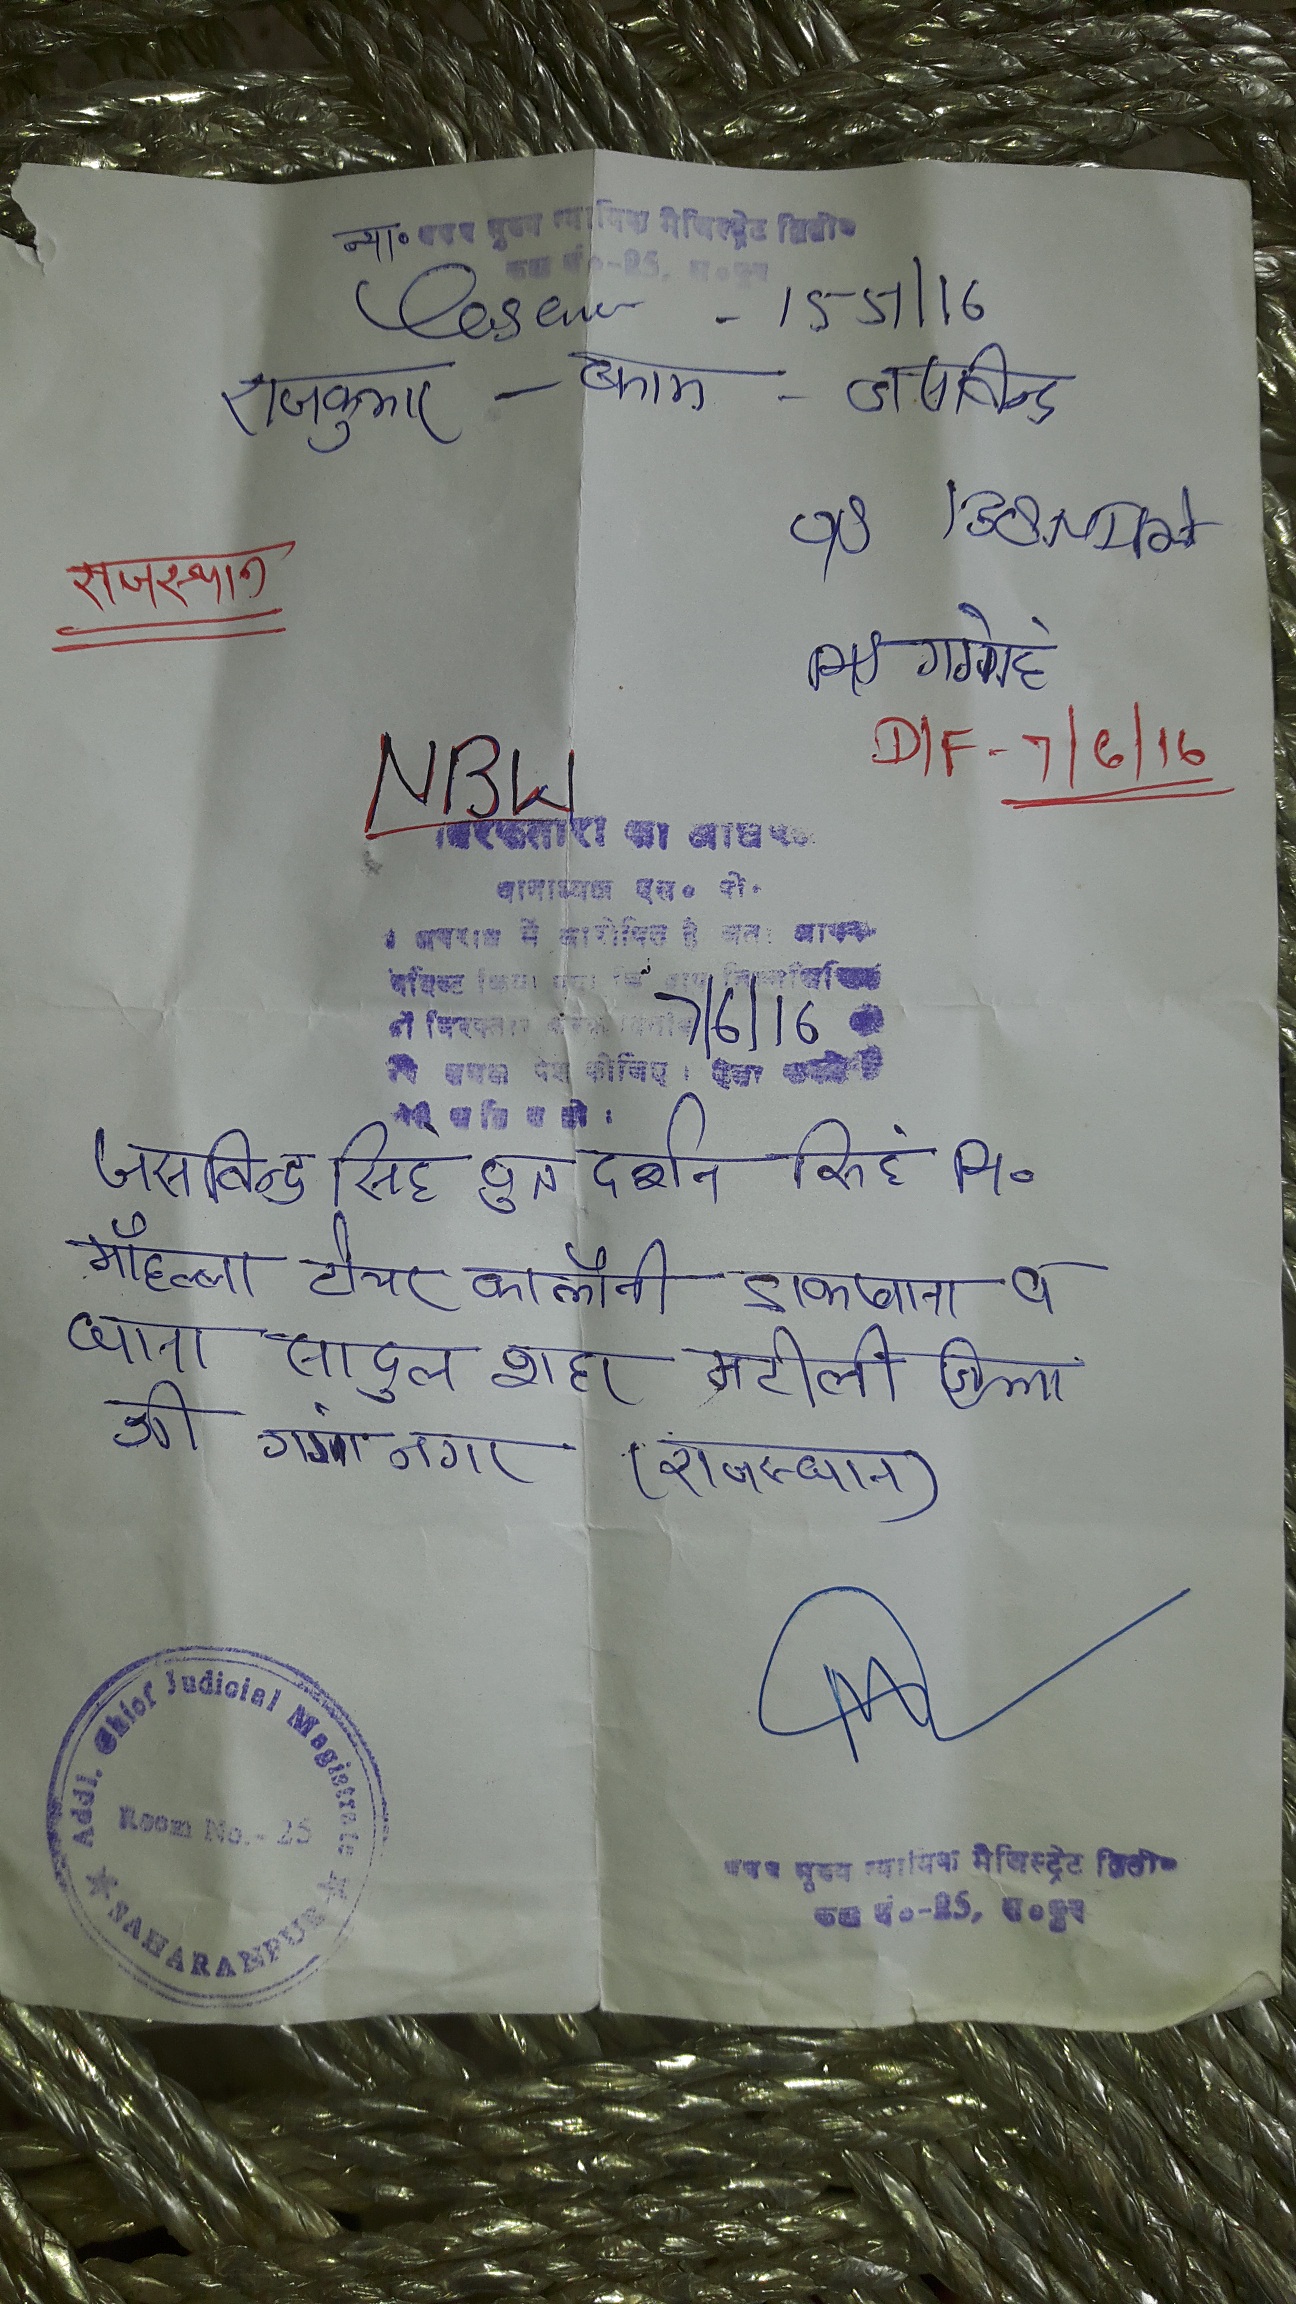 न्या॰ अपर मुख्य न्यायिक मैजिस्ट्रेट द्वितीय
कक्ष सं०-25, स०पुर
Case no - 1551/16
राजकुमार - बनाम - जसविन्द्र
U/S 138 N I Act
राजस्थान
P/S गंगोह
D/F - 7/6/16
NBW
गिरफ्तारी का आदेश
थानाध्यक्ष एस० ओ०
अपराध में आरोपित है अतः आपको
7/6/16
को गिरफ्तार करके दिनांक
के समक्ष पेश कीजिए। इसमें
त्रुटि न हो।
जसविन्द्र सिहं पुत्र दर्शन सिहं नि०
मौहल्ला टीचर कालौनी डाकखाना व
थाना सादुल शहर मटीली जिला
श्री गंगा नगर (राजस्थान)
Addl. Chief Judicial Magistrate
Room No.- 25
SAHARANPUR
अपर मुख्य न्यायिक मैजिस्ट्रेट द्वितीय
कक्ष सं०-25, स०पुर